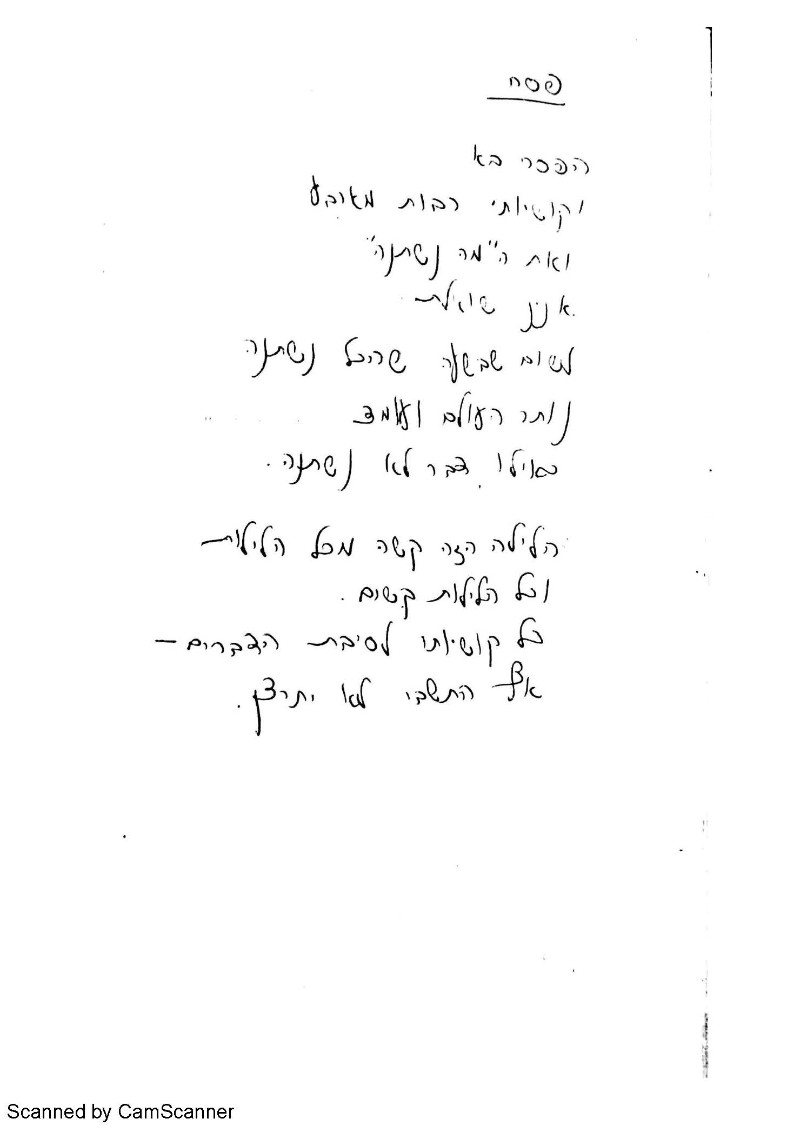 פסח
בא
וקושיותי רבות מארבע
ואת ה"מה נשתנה"
שואלת
משום שבשעה שהכל נשתנה
נותר העולם ועומד
כאילו דבר לא נשתנה.
הלילה הזה קשה מכל הלילות
וכל הלילות קשים.
כל קושיותי לסיבת הדברים –
אף התשבי לא יתרצן.
Scanned by CamScanner